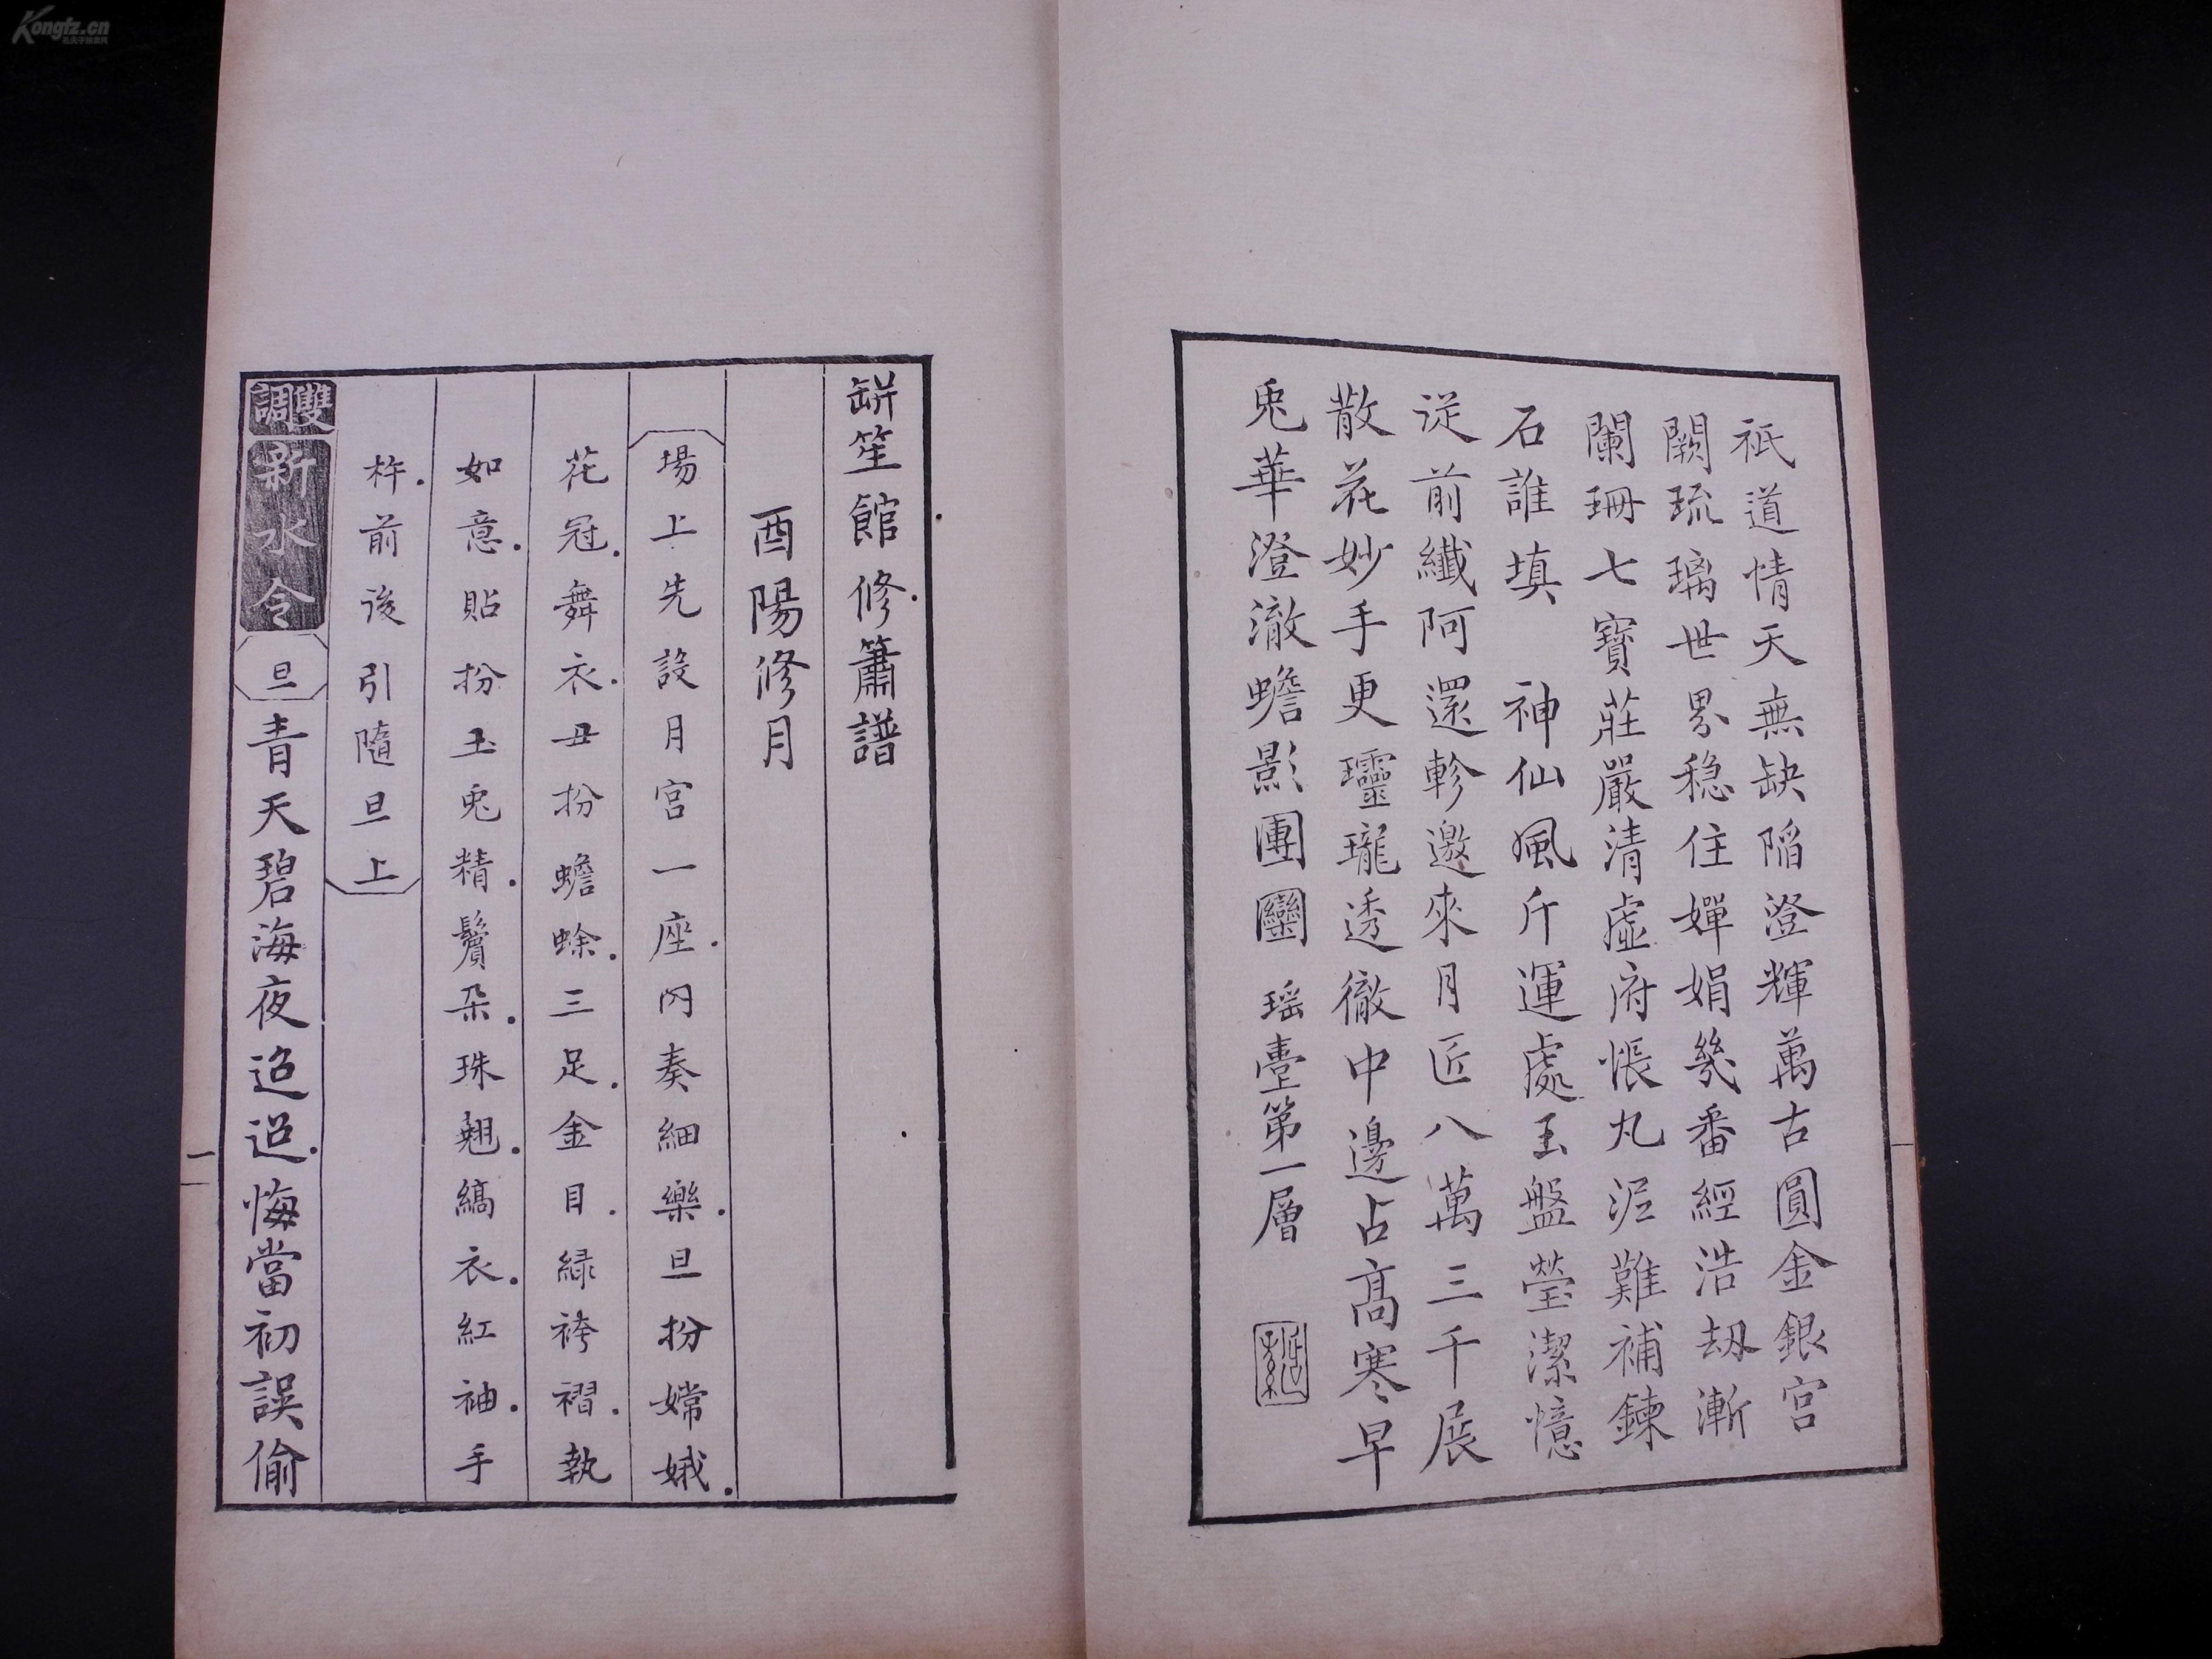 祇道情天無缺陷澄輝萬古圓金銀宮
闕琉璃世界穏住嬋娟幾番經浩劫漸
闌珊七寶莊嚴清虛府悵丸泥難補鍊
石誰填　神仙風斤運處玉盤瑩潔憶
從前纖阿還軫邀來月匠八萬三千展
散花妙手更瓏透徹中邊占高寒早
兎華澄澈蟾影團圞　瑶臺第一層
缾笙館修簫譜
酉陽修月
場上先設月宮一座內奏細樂旦扮嫦娥
花冠舞衣丑扮蟾蜍三足金目緑袴褶執
如意貼扮玉兎精鬢朵珠翹縞衣紅袖手
杵前後引隨旦上
雙調
新水令
旦青天碧海夜迢迢悔當初誤偷
一
Kongfz.cn
孔夫子舊書网